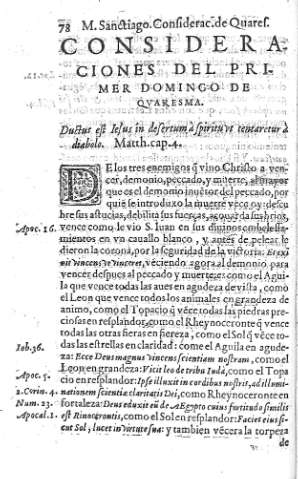 78 M. Sanctiago. Considerac. de Quares.
CONSIDERA-
CIONES DEL PRI-
MER DOMINGO DE
QVARESMA.
Ductus est Iesus in desertum à spiritu vt tentaretur à
diabolo. Matth. cap. 4.
DE los tres enemigos q̃ vino Christo a ven-
cer, demonio, peccado, y muerte, el mayor
que es el demonio inuẽtor del peccado, por
quiẽ se introduxo la muerte vẽce oy: descu-
bre sus astucias, debilita sus fuerças,
Apoc. 16. vence como le vio S. Iuan en sus
mientos en vn cauallo blanco, y antes de pelear le
dieron la corona, por la seguridad de la victoria: Et exi-
uit vincens vt vinceret, veciendo agora al demonio para
vencer despues al peccado y muerte: como el Agui-
la que vence todas las aues en agudeza de vista, como
el Leon que vence todos los animales en grandeza de
animo, como el Topacio q̃ vẽce todas las piedras pre-
ciosas en resplandor, como el Rheynoceronte q̃ vence
todas las otras fieras en fiereza, como el Sol q̃ vẽce to-
das las estrellas en claridad: como el Aguila en agude-
Iob. 36. za: Ecce Deus magnus vincens scientiam nostram, como el
Leon en grandeza: Vicit leo de tribu Iuda, como el Topa
Apoc. 5. cio en resplandor: Ipse illuxit in cordibus nostris, ad illumi-
2. Corin. 4. nationem scientiæ claritatis Dei, como Rheynoceronte en
Num. 23. fortaleza: Deus eduxit eũ de AEgypto cuius fortitudo similis
Apocal. 1. est Rinocerontis, como el Sol en resplandor: Facies eius si-
cut Sol, lucet in virtute sua: y tambien vẽcera la torpeza
de